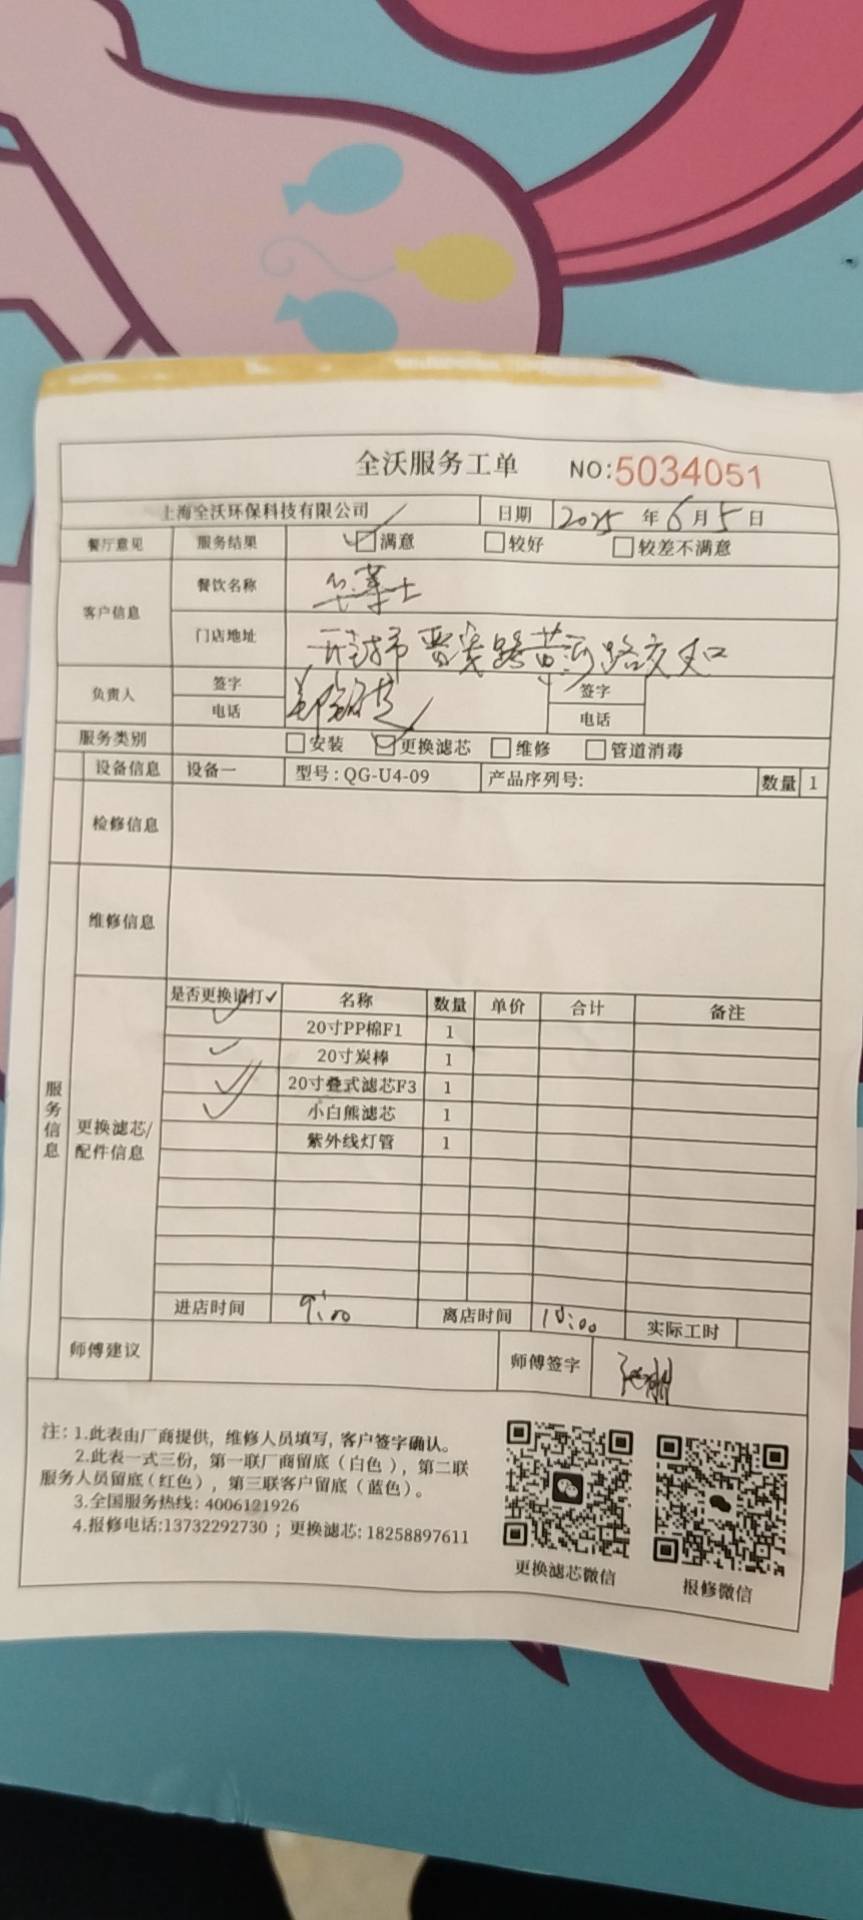 全沃服务工单 NO:5034051
上海全沃环保科技有限公司 日期 2025 年 6 月 5 日
餐厅意见 服务结果 满意 较好 较差不满意
客户信息 餐饮名称 华莱士
门店地址 开封市 晋安路黄河路交叉口
负责人 签字 签字
电话 电话
服务类别 安装 更换滤芯 维修 管道消毒
设备信息 设备一 型号:QG-U4-09 产品序列号: 数量 1
检修信息
维修信息
服务信息
更换滤芯/
配件信息
是否更换请打✓ 名称 数量 单价 合计 备注
✓ 20寸PP棉F1 1
✓ 20寸炭棒 1
✓ 20寸叠式滤芯F3 1
✓ 小白熊滤芯 1
紫外线灯管 1
进店时间 9:00 离店时间 10:00 实际工时
师傅建议 师傅签字
注: 1.此表由厂商提供, 维修人员填写, 客户签字确认。
2.此表一式三份, 第一联厂商留底(白色), 第二联
服务人员留底(红色), 第三联客户留底(蓝色)。
3.全国服务热线: 4006121926
4.报修电话:13732292730 ; 更换滤芯: 18258897611
更换滤芯微信 报修微信